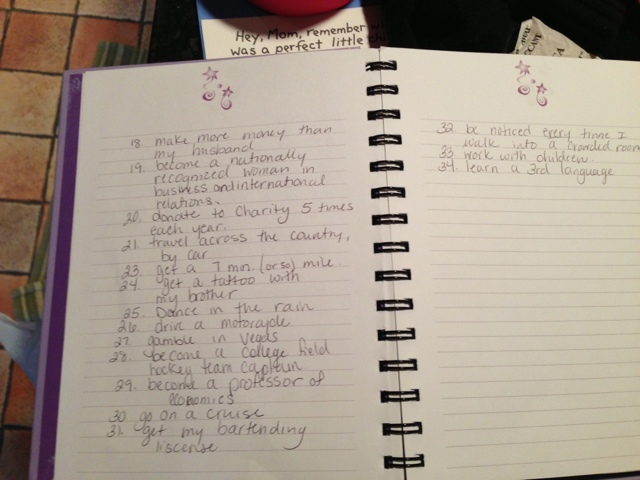 Hey, Mom, remember
was a perfect little
18. make more money than
my husband
19. become a nationally
recognized woman in
business and international
relations.
20. donate to Charity 5 times
each year.
21. travel across the country,
by car
23. get a 7 min. (or so) mile.
24. get a tattoo with
my brother
25. Dance in the rain
26. drive a motorcycle
27. gamble in Vegas
28. become a college field
hockey team captain
29. become a professor of
economics
30. go on a cruise
31. get my bartending
liscense
32. be noticed every time I
walk into a crowded room
33. work with children.
34. learn a 3rd language